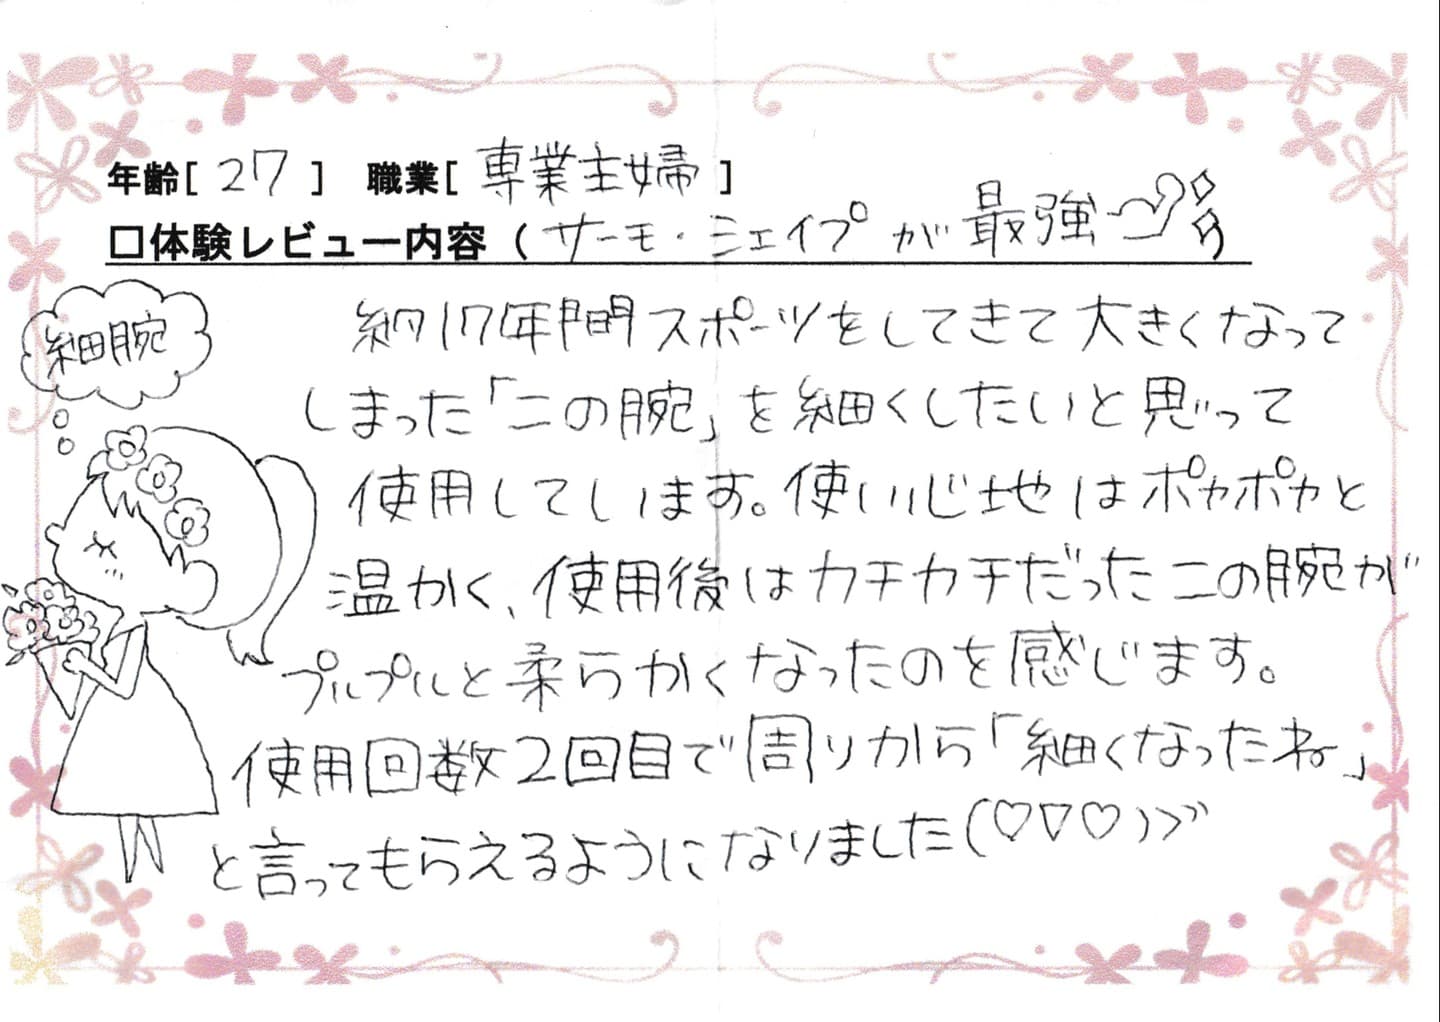 年齢[ 27 ] 職業[ 専業主婦 ]
□体験レビュー内容 ( サーモ・シェイプが最強 )
細腕
約17年間スポーツをしてきて大きくなって
しまった「二の腕」を細くしたいと思って
使用しています。使い心地はポカポカと
温かく、使用後はカチカチだった二の腕が
プルプルと柔らかくなったのを感じます。
使用回数2回目で周りから「細くなったね」
と言ってもらえるようになりました(♡▽♡)ゞ